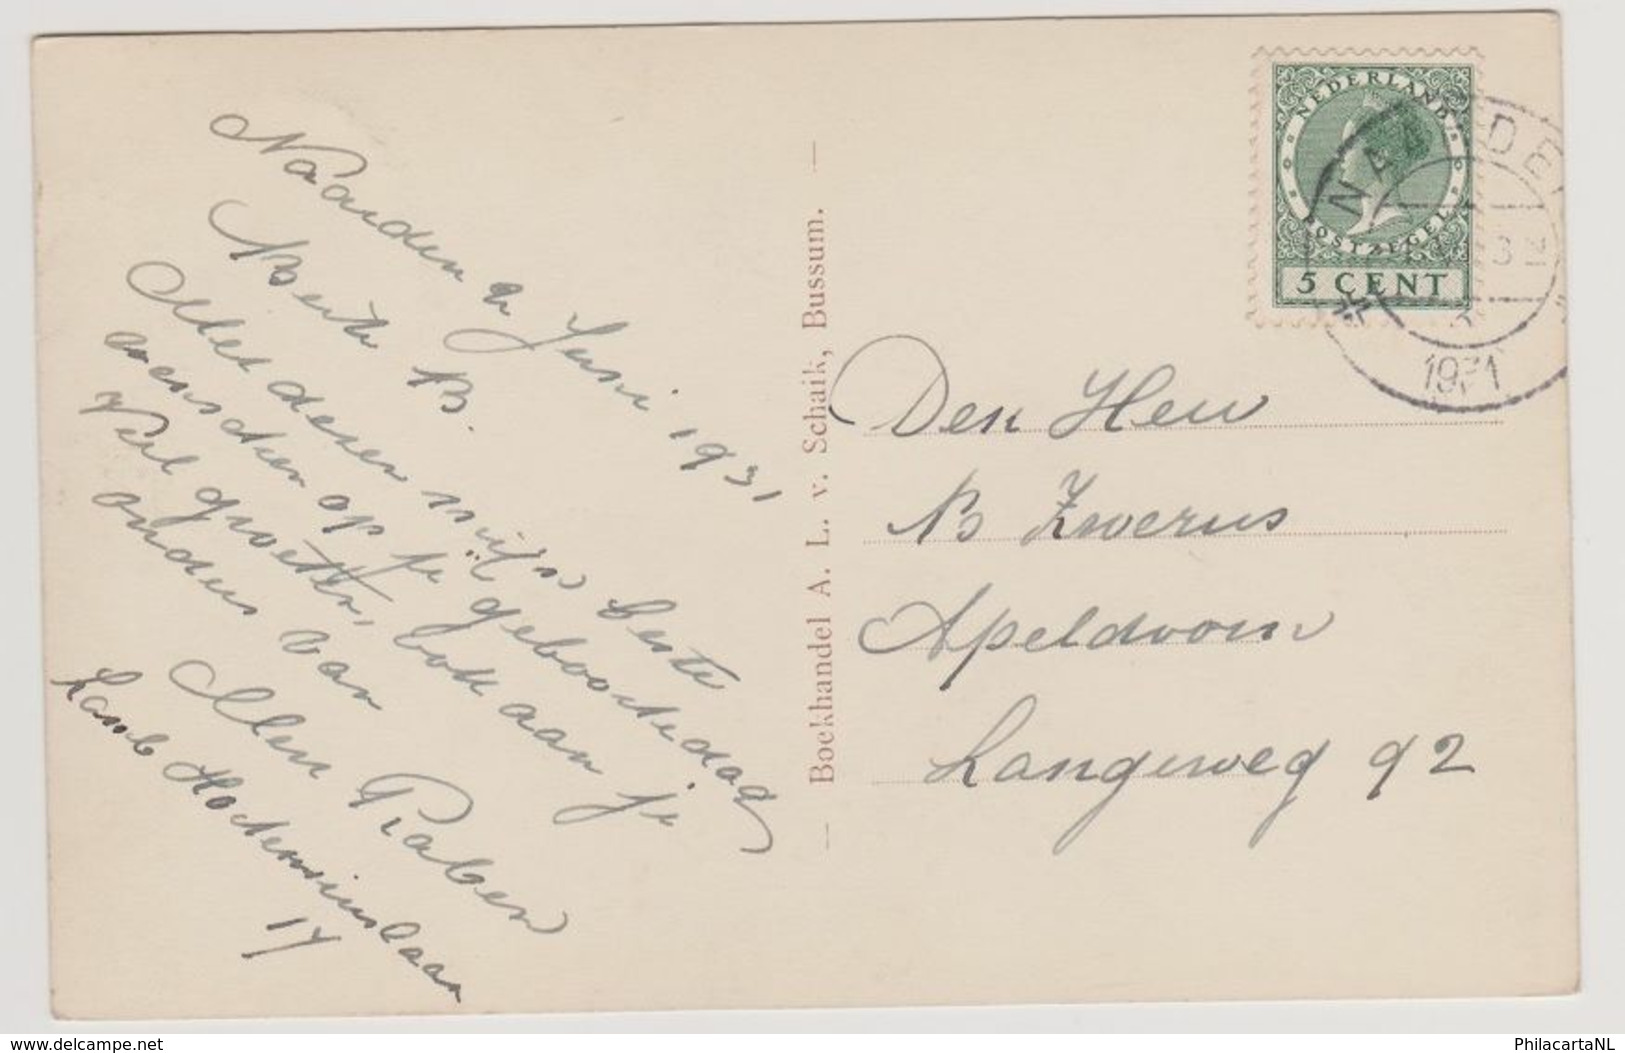 Naarden 2 Juni 1931
Beste B.
Met deze mijn beste
wenschen op je geboortedag
Veel groeten, ook aan je
ouders van
Mien Raben
Lamb Hortensiuslaan
17
Boekhandel A. L. v. Schaik, Bussum.
NEDERLAND
POSTZEGEL
5 CENT
NAARDEN
1931
Den Heer
B Zwerus
Apeldoorn
Langeweg 92
www.delcampe.net
PhilacartaNL